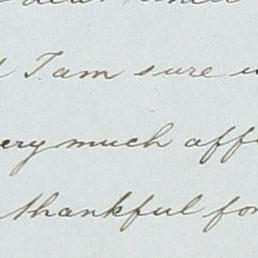 I am sure
ery much aff
thankful for